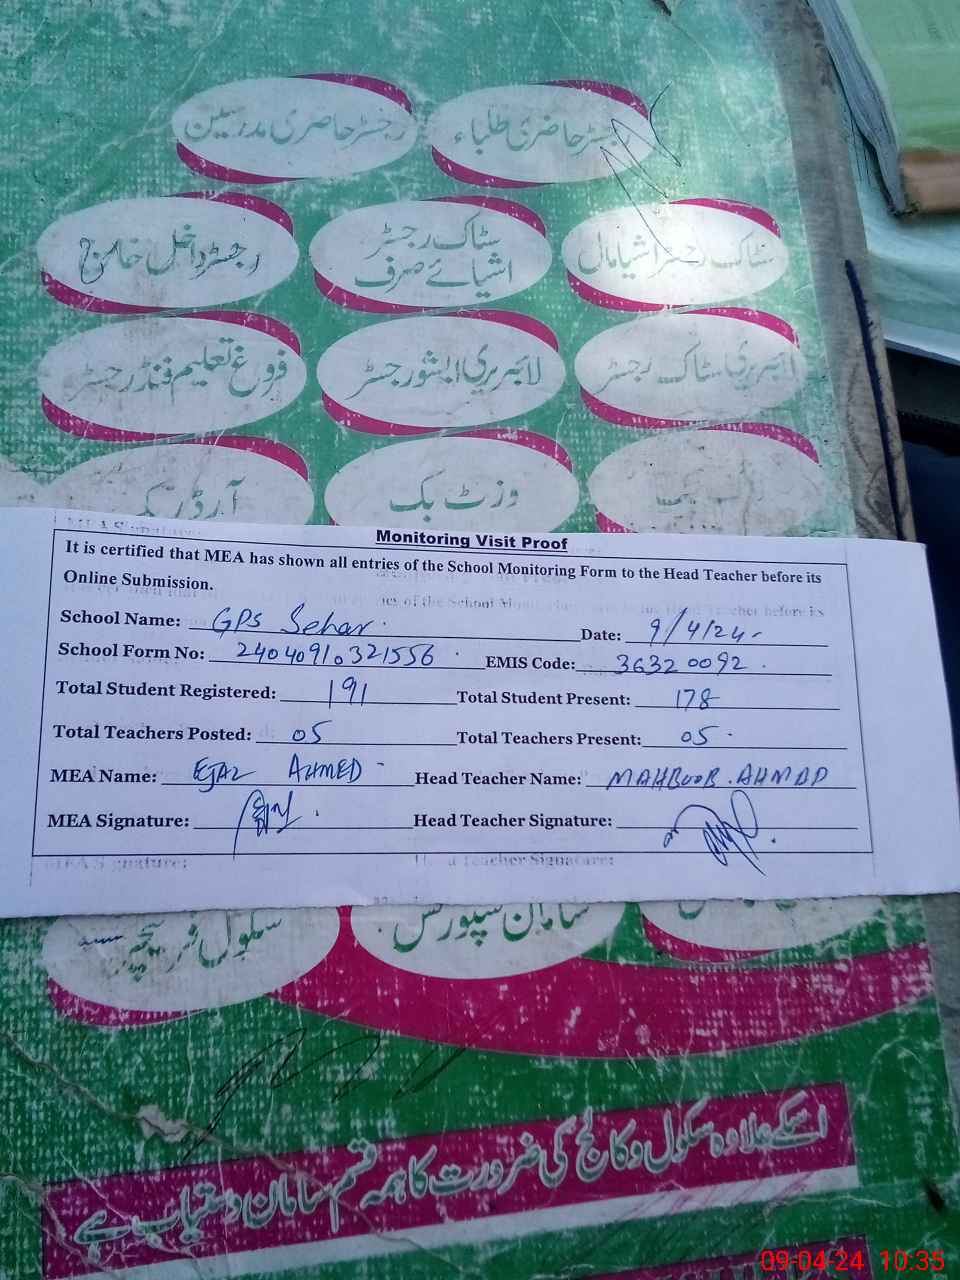 رجسٹر حاضری طلباء
رجسٹر حاضری مدرسین
سٹاک رجسٹر اشیا مال
سٹاک رجسٹر
اشیائے صرف
رجسٹر داخل خارج
لائبریری سٹاک رجسٹر
لائبریری ایشو رجسٹر
فروغ تعلیم فنڈ رجسٹر
وزٹ بک
آرڈر بک
Monitoring Visit Proof
It is certified that MEA has shown all entries of the School Monitoring Form to the Head Teacher before its
Online Submission.
School Name: GPS Sehar. Date: 9/4/24
School Form No: 24040910321556 EMIS Code: 36320092
Total Student Registered: 191 Total Student Present: 178
Total Teachers Posted: 05 Total Teachers Present: 05
MEA Name: EJAZ AHMED Head Teacher Name: MAHBOOB AHMAD
MEA Signature: Head Teacher Signature:
MEA Signature: Head Teacher Signature:
سامان سپورٹس
سکول فرنیچر
اسکے علاوہ سکول و کالج کی ضرورت کا ہمہ قسم سامان دستیاب ہے
09-04-24 10:35